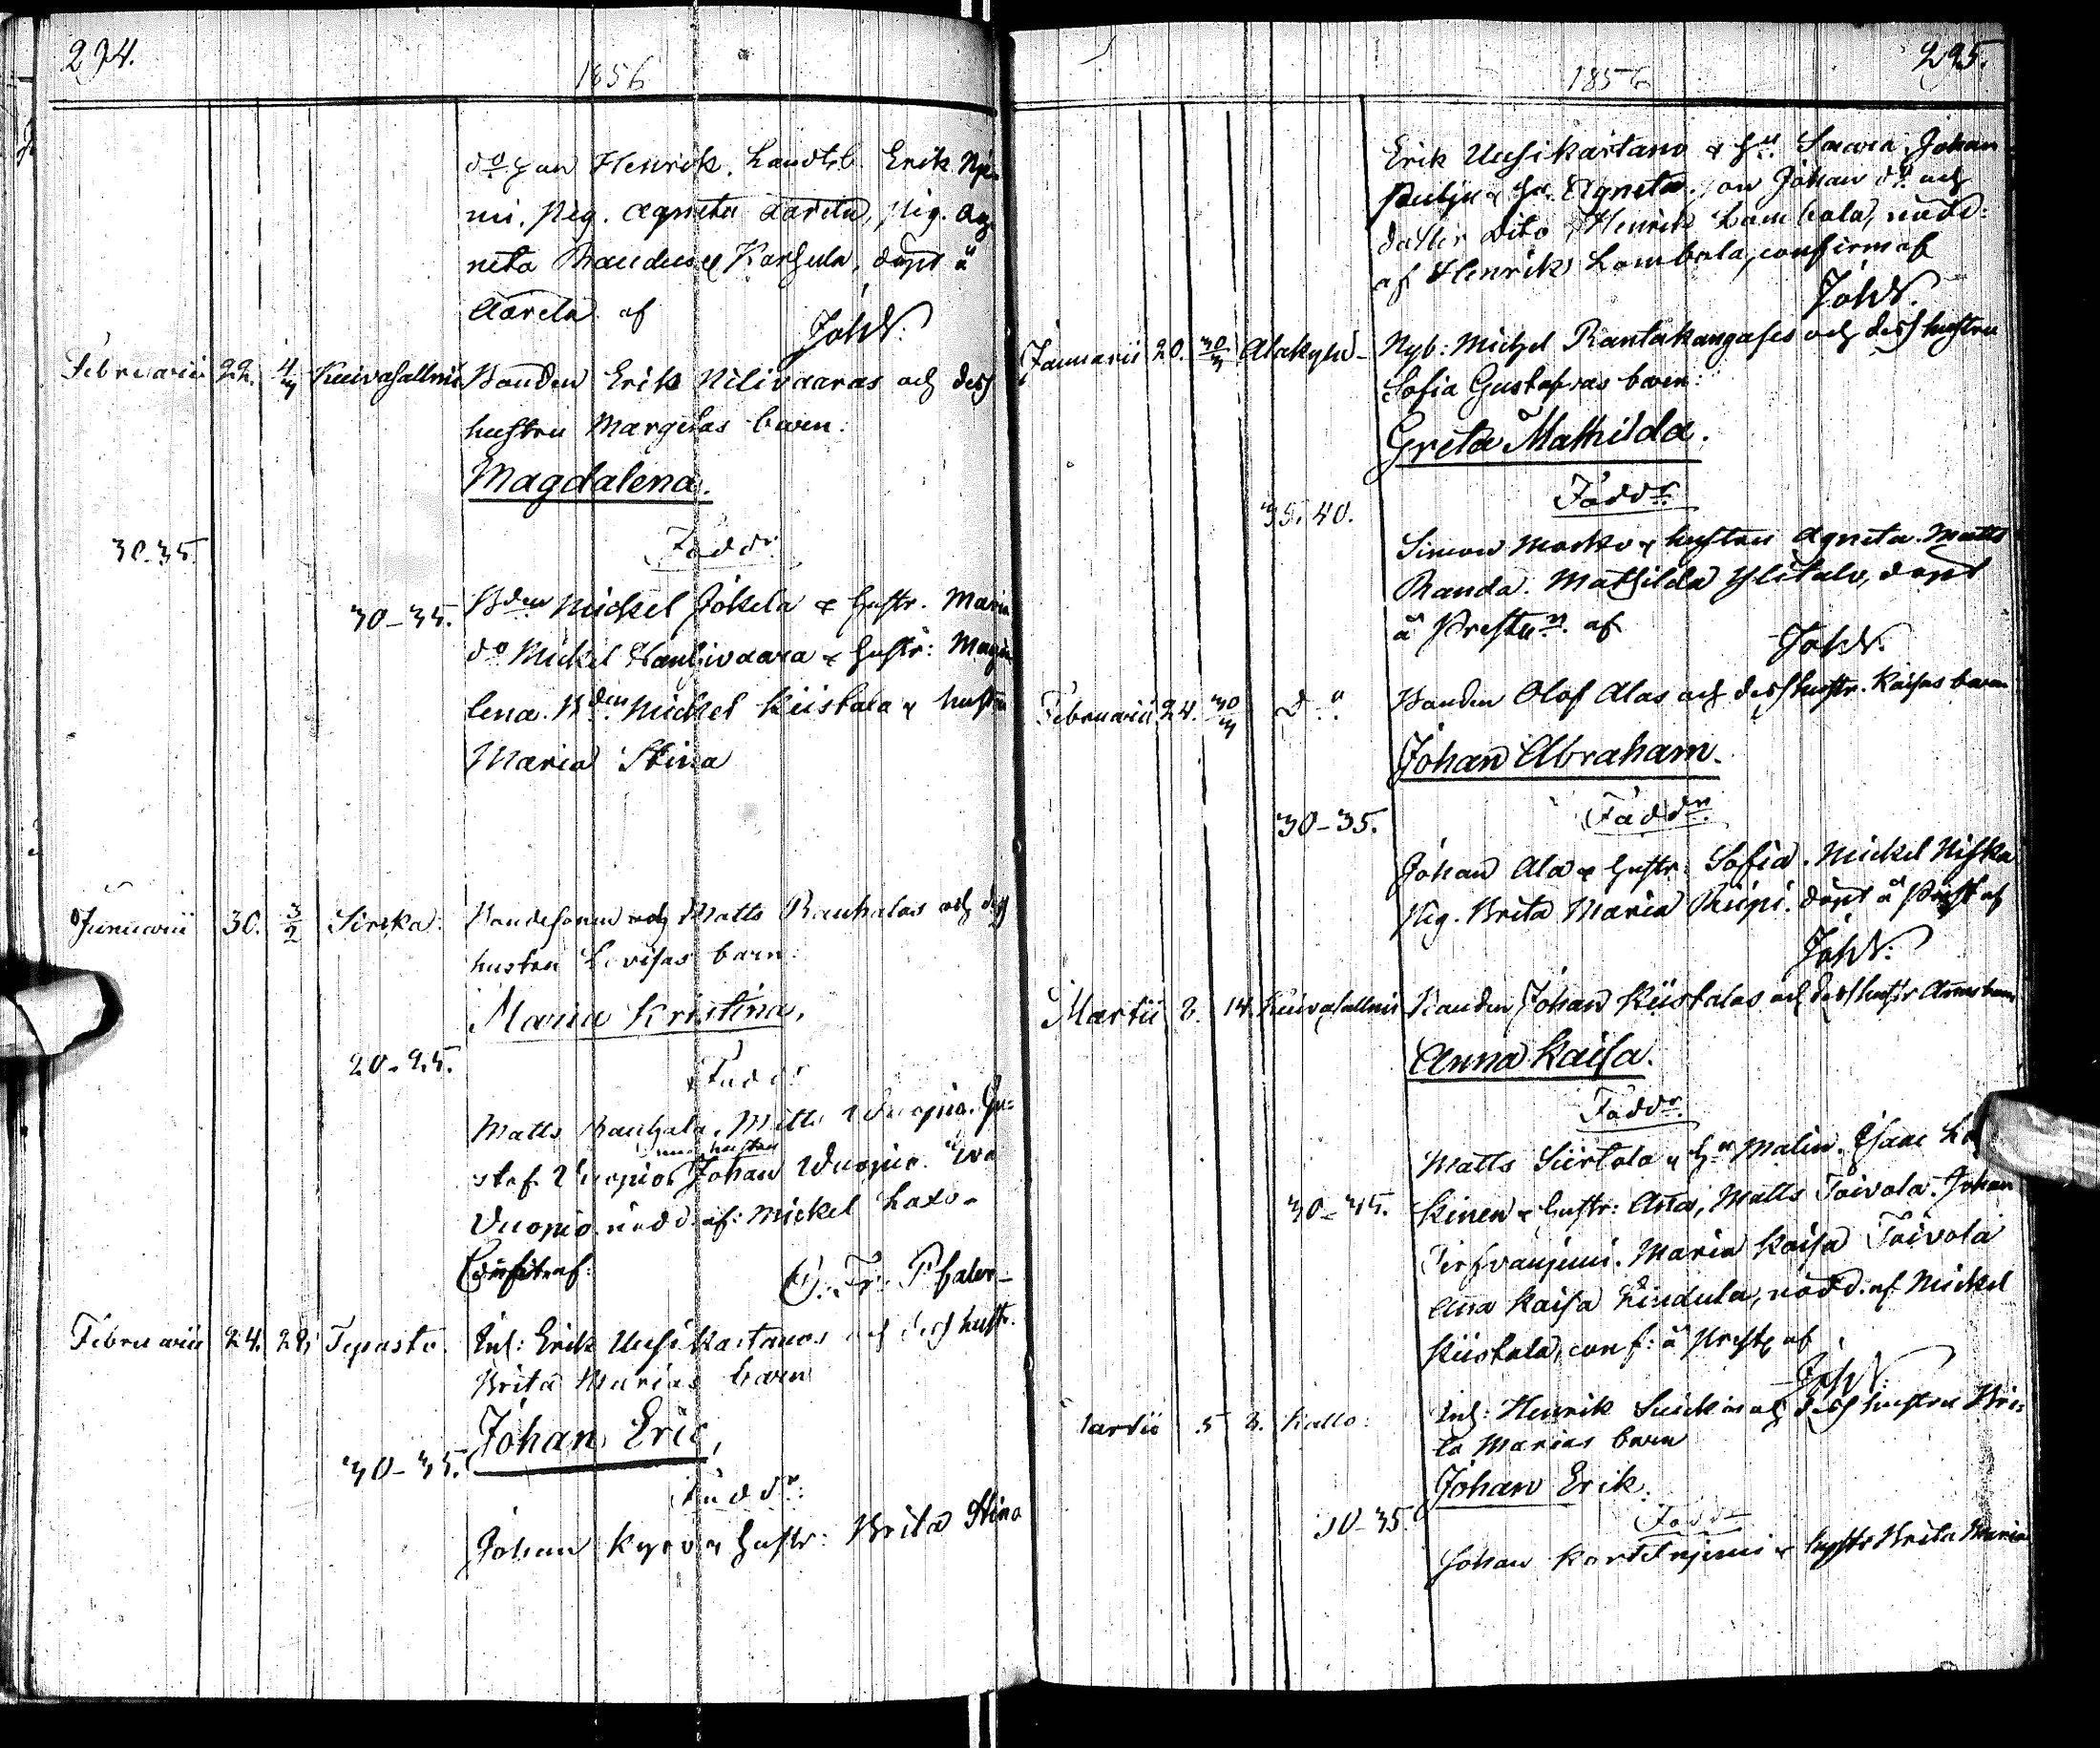 294.
1856
do Jan Henrik. Landtb. Erik Ny-
mi. Pig. Agneta Aarela, Pig. Ag-
neta Raudus Karhula, döpt å
Aarela af
Joh W.
Februarii 22. 4/3 Kuivasalmi Bonden Erik Nilivaaras och dess
hustru Margetas barn:
Magdalena.
Faddr
30-35.
30-35. Bden Mickel Jokela & hustr. Maria
do Mickel Hanhivaara & hustr: Magda
lena. Bden Mickel Kiistala & hustru
Maria Stina
Januarii 30. 3/2 Sirkka: Bondesonen Matts Rauhalas och dess
hustru Lovisas barn:
Maria Kristina.
20-25.
Faddr
Matts Rauhala, Matts Vuopio. Gu-
staf Vuopio med hustru Johan Vuopio. Eva
Vuopio nödd. af: Mickel Laxo-
Confit. af:
Februarii 24. 28. Tepasto. Inh: Erik Uusikartanos och dess hustr.
Brita Marias barn
Johan Eric,
30-35.
Faddr:
Johan Kyrö & hustr: Brita Stina
295.
1856
Erik Uusikartano & hu Johan
hu Agneta. Johan do och
dotter Dito Henrik Lombola, nödd:
af Henrik Lombola, confirm af
Joh W.
Januarii 20. 30/3 Alakylä- Nyb: Michel Rantakangases och dess hustru
Sofia Gustafvas barn:
Greta Mathilda.
35-40.
Faddr
Simon & hustru Agneta. Matts
Randa. Mathilda Ylitalo, döpt
å Prestg. af
Joh W.
Februarii 24. 30/3 Do Bonden Olof Alas och dess hustr. Kaisas barn
Johan Abraham.
30-35.
Faddr
Johan Ala & hustr: Sofia. Mickel Niska
Pig. Brita Maria Riipi. döpt å Prestg af
Joh W.
Martii 2. 14. Kuivasalmi Bonden Johan Kiistalas och dess hustr Annas barn
Anna Kaisa.
Faddr.
Matts Siirtola & hu Malin. Isaac
30-35. kinen & hustr: Ana, Matts Toivola. Johan
Maria Kaisa Toivola
Ana Kaisa Lindula, nödd. af Mickel
Kiistala, conf: å Prestg af
Joh W.
artii 5 2. Kallo: Inh: Henrik och dess hustru Bri-
ta Marias barn
Johan Erik.
30-35.
Faddr
Johan & hustr Brita Maria